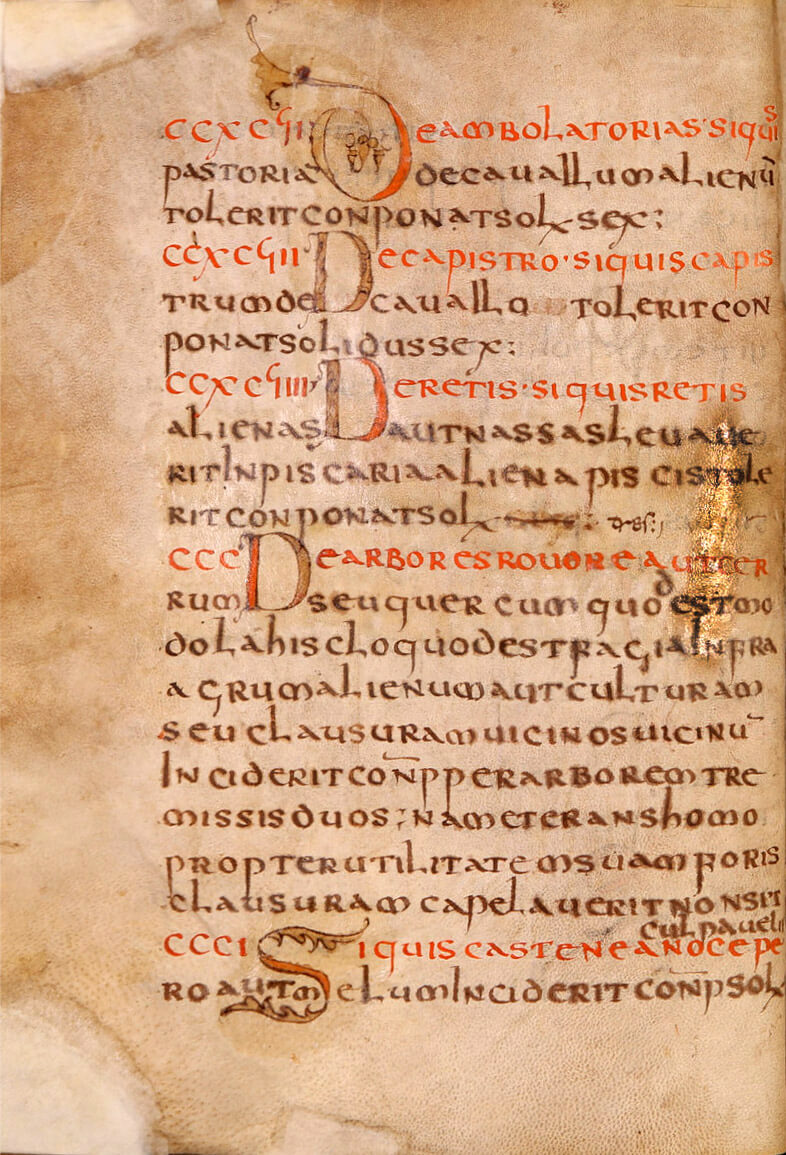 CCXCVII DEAMBOLATORIAS·SIQUIS
PASTORIA DECAUALLUMALIENŪ
TOLERITCONPONATSOLSEX;
CCXCVIII DECAPISTRO·SIQUISCAPIS
TRUMDE CAUALLO TOLERITCON
PONATSOLIDUSSEX;
CCXCVIIII DERETIS·SIQUISRETIS
ALIENAS AUTNASSASLEUAUE
RITINPISCARIAALIENAPISCISTOLE
RITCONPONATSOL
CCC DEARBORESROUOREAUTCER
RUM SEUQUERCUMQUODESTMO
DOLAHISCLOQUODESTFRAGIAINFRA
AGRUMALIENUMAUTCULTURAM
SEUCLAUSURAMUICINOSUICINŪ
INCIDERITCOÑPPERARBOREMTRE
MISSISDUOS;NAMETERANSHOMO
PROPTERUTILITATEMSUAMFORIS
CLAUSURAMCAPELAUERITNONSIT
CULPAUELI
CCCI SIQUISCASTENEANOCEPE
ROAUTMELUMINCIDERITCOÑPSOL